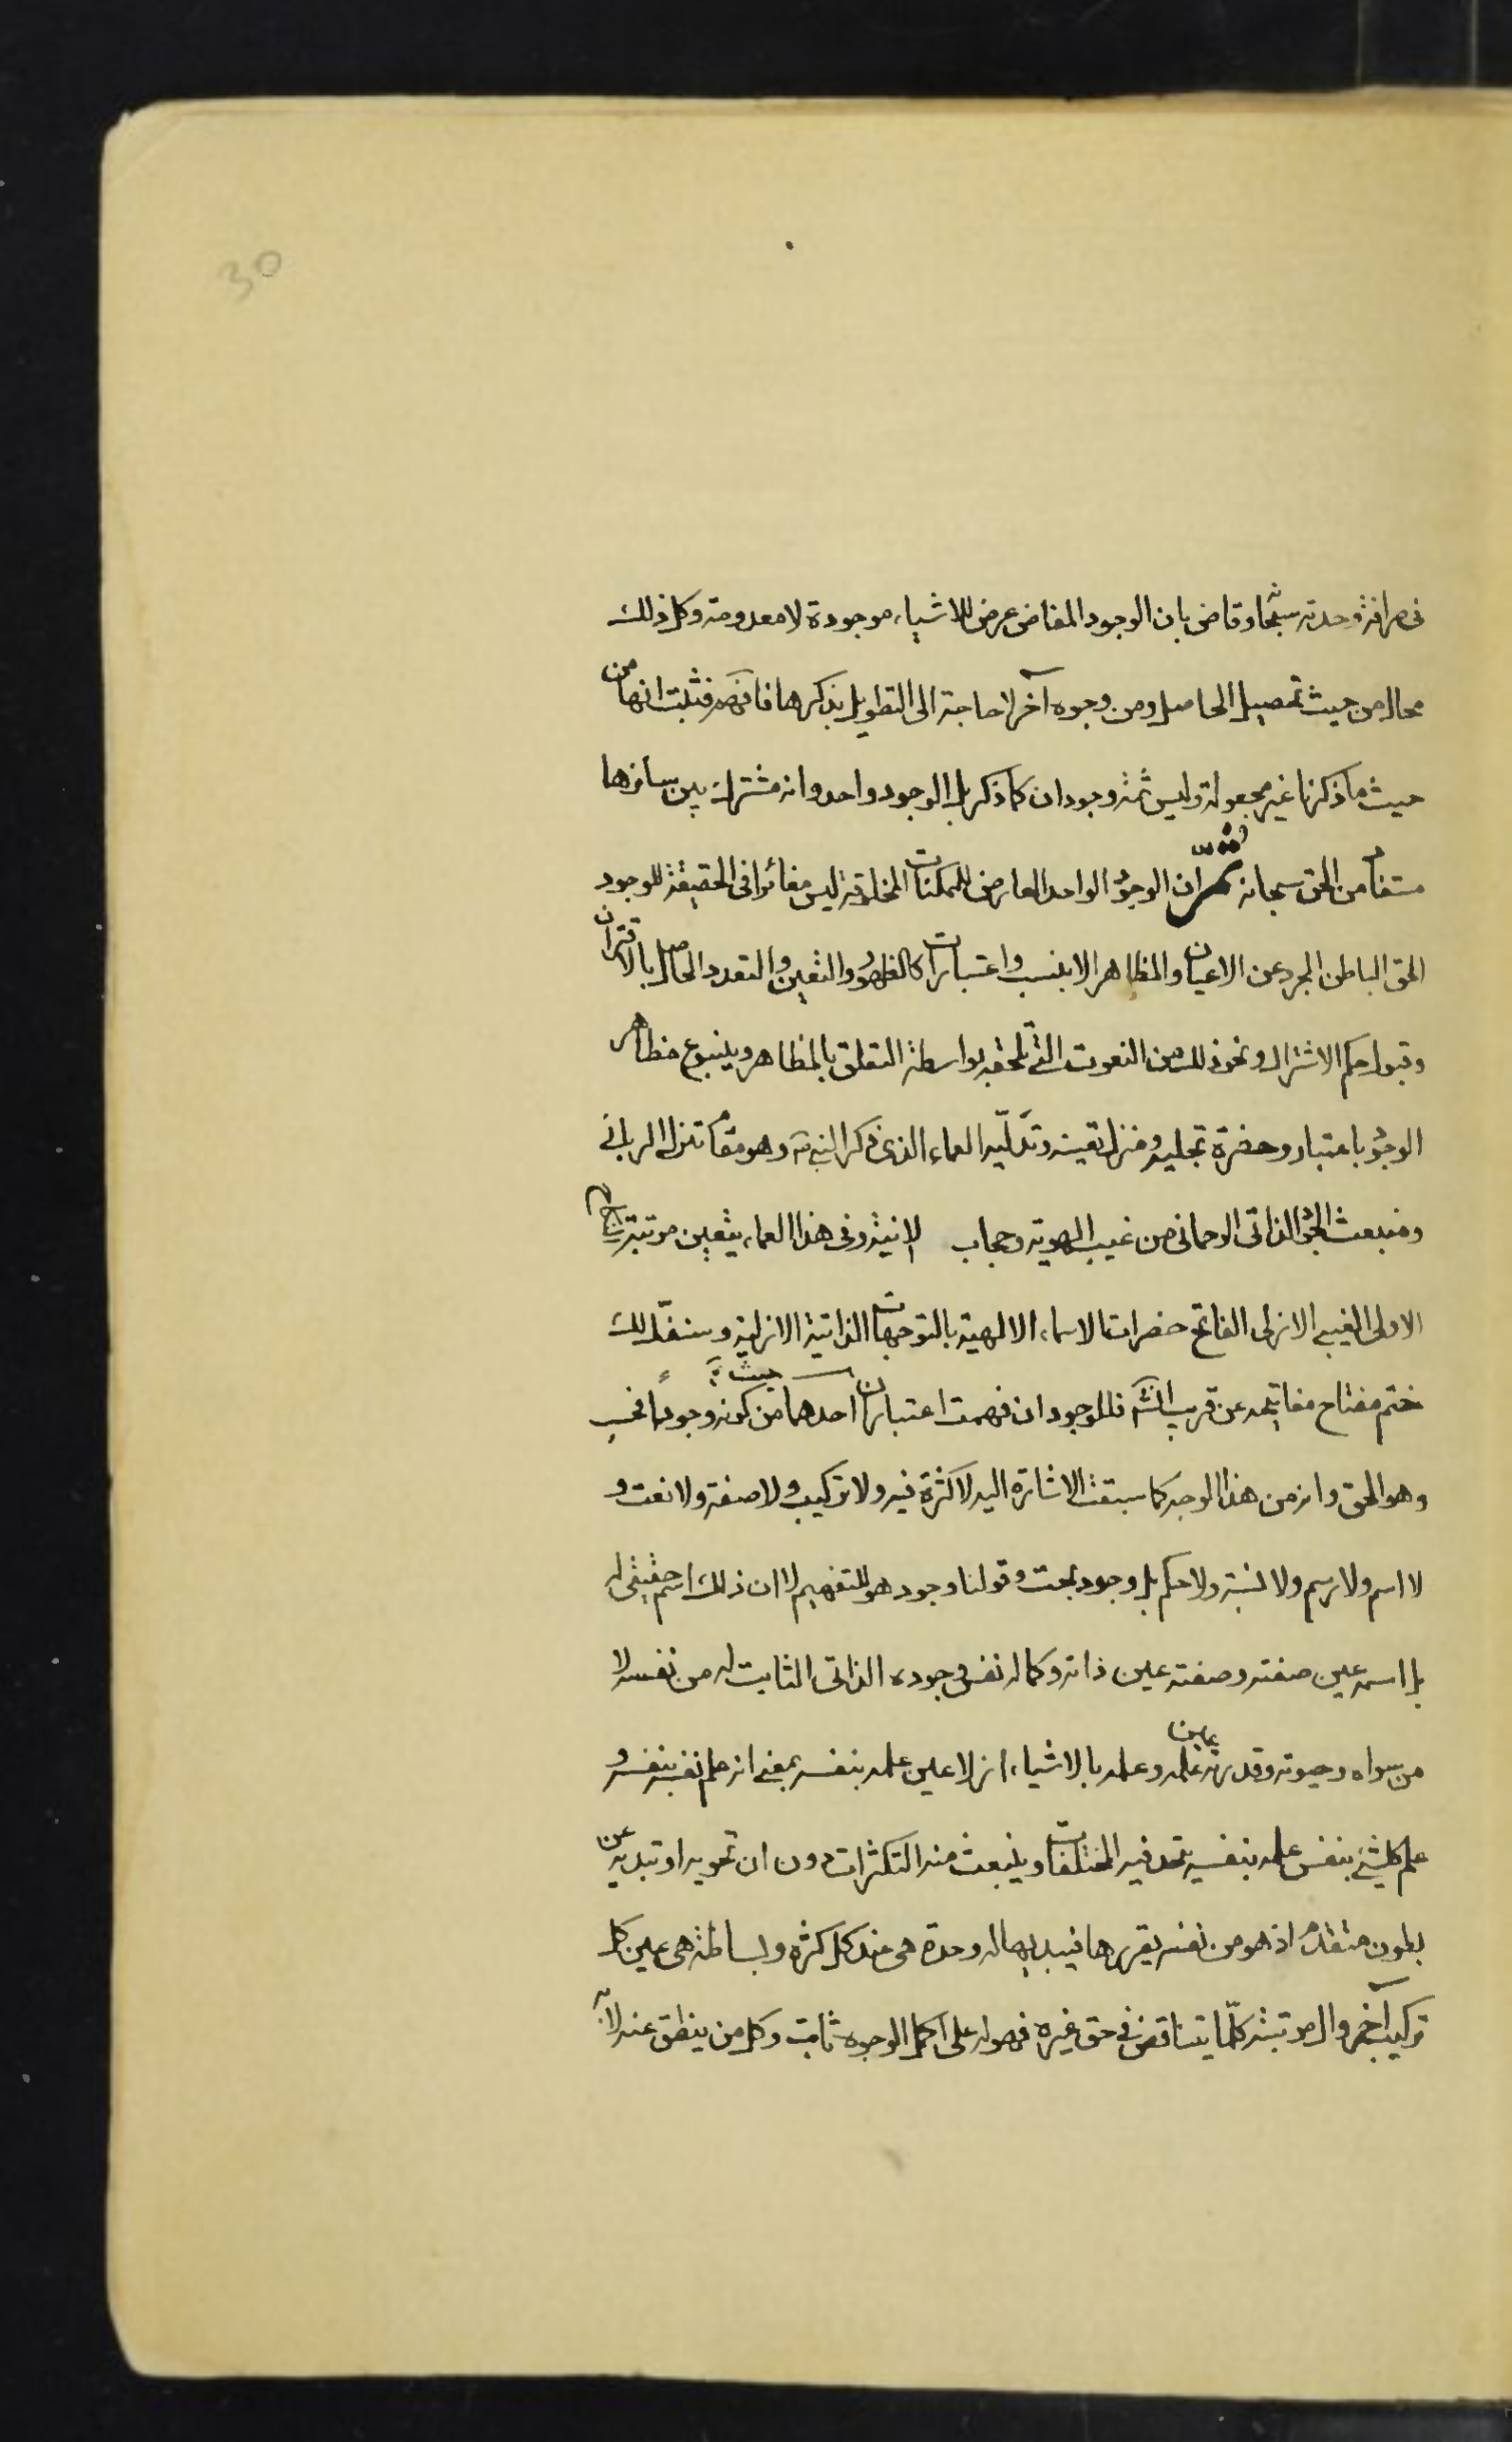 30
في صرافة وحدته سبحانه وقاض بان الوجود المفاض عرض للاشياء موجودة لا معدومة وكل ذلك
محال من حيث تحصيل الحاصل ومن وجوه آخر لا حاجة الى التطويل بذكرها فافهم فثبت انها من
حيث ما ذكرنا غير مجعولة وليس ثمه وجودان كما ذكر بل الوجود واحد وانه مشترك بين سائرها
مستفاد من الحق سبحانه ثم ان الوجود الواحد العارض للممكنات المخلوقة ليس مغائرا في الحقيقة للوجود
الحق الباطن المجرد عن الاعيان والمظاهر الا بنسب واعتبارات كالظهور والتعين والتعدد الحاصل بالاقتران
وقبول حكم الاشتراك ونحو ذلك من النعوت التي تلحقه بواسطة التعلق بالمظاهر وينبوع مظاهر
الوجود باعتبار وحضرة تجليه ومنزل تعينه وتدليه العماء الذي ذكره النبي وهو مقام تنزل الرباني
ومنبعث الجود الذاتي الرحماني من غيب الهوية وحجاب الانية وفي هذا العماء يتعين مرتبة النكاح
الاولى الغيبي الازلي الفاتح حضرات الاسماء الالهية بالتوجهات الذاتية الازلية وسنفك لك
ختم مفتاح مفاتيحه عن قريب انشاء الله فللوجود ان فهمت اعتباران احدهما من حيث كونه وجودا فحسب
وهو الحق وانه من هذا الوجه كما سبقت الاشارة اليه لا كثرة فيه ولا تركيب ولا صفة ولا نعت و
لا اسم ولا رسم ولا نسبة ولا حكم بل وجود بحت وقولنا وجود هو للتفهيم لا ان ذلك اسم حقيقي له
بل اسمه عين صفته وصفته عين ذاته وكماله نفس وجوده الذاتي الثابت له من نفسه لا
من سواه وحيوته وقدرته عين علمه وعلمه بالاشياء ازلا عين علمه بنفسه بمعنى انه علم نفسه بنفسه و
علم كل شيء بنفس علمه بنفسه يتحد فيه المختلفات وينبعث منه التكثرات دون ان تحويه او تبديه عن
بطون متقدم اذ هو من نفسه يقررها فيبديها له وحدة هي محتد كل كثرة وبساطة هي عين كل
تركيب آخر وال مرتبة كلما يتناقض في حق غيره فهو له على اكمل الوجوه ثابت وكل من ينطق عنه لا به